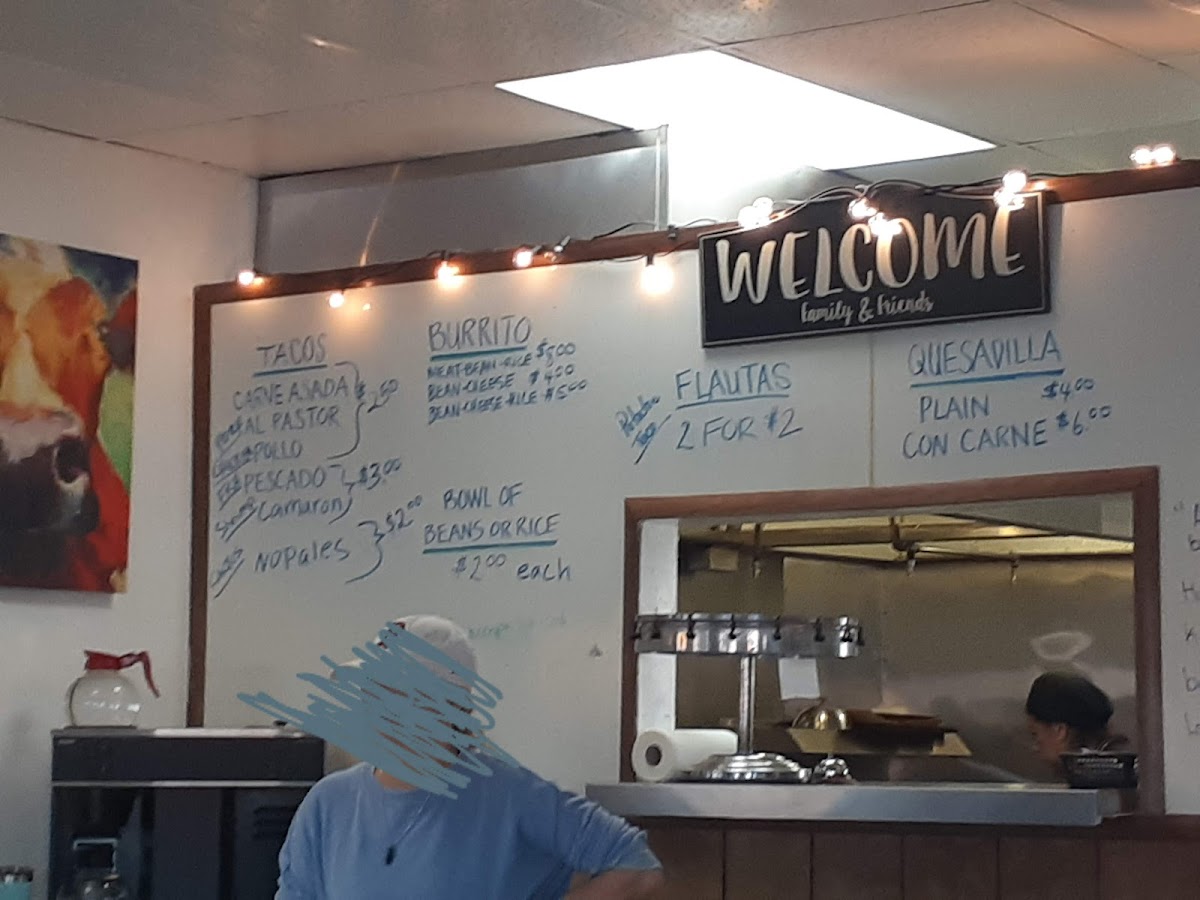 WELCOME
family & friends
TACOS
CARNE ASADA
AL PASTOR $2.50
POLLO
PESCADO
Camaron $3.00
NOPALES $2.00
BURRITO
MEAT-BEAN-RICE $5.00
BEAN-CHEESE $4.00
BEAN-CHEESE-RICE $5.00
BOWL OF
BEANS OR RICE
$2.00 each
FLAUTAS
2 FOR $2
QUESADILLA
PLAIN $4.00
CON CARNE $6.00